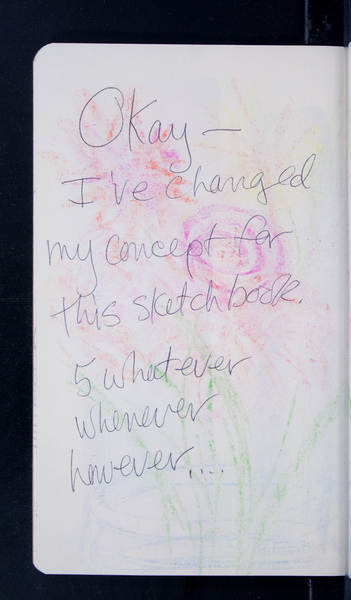 Okay —
I've changed
my concept for
this sketchbook.
5 whatever
whenever
however....